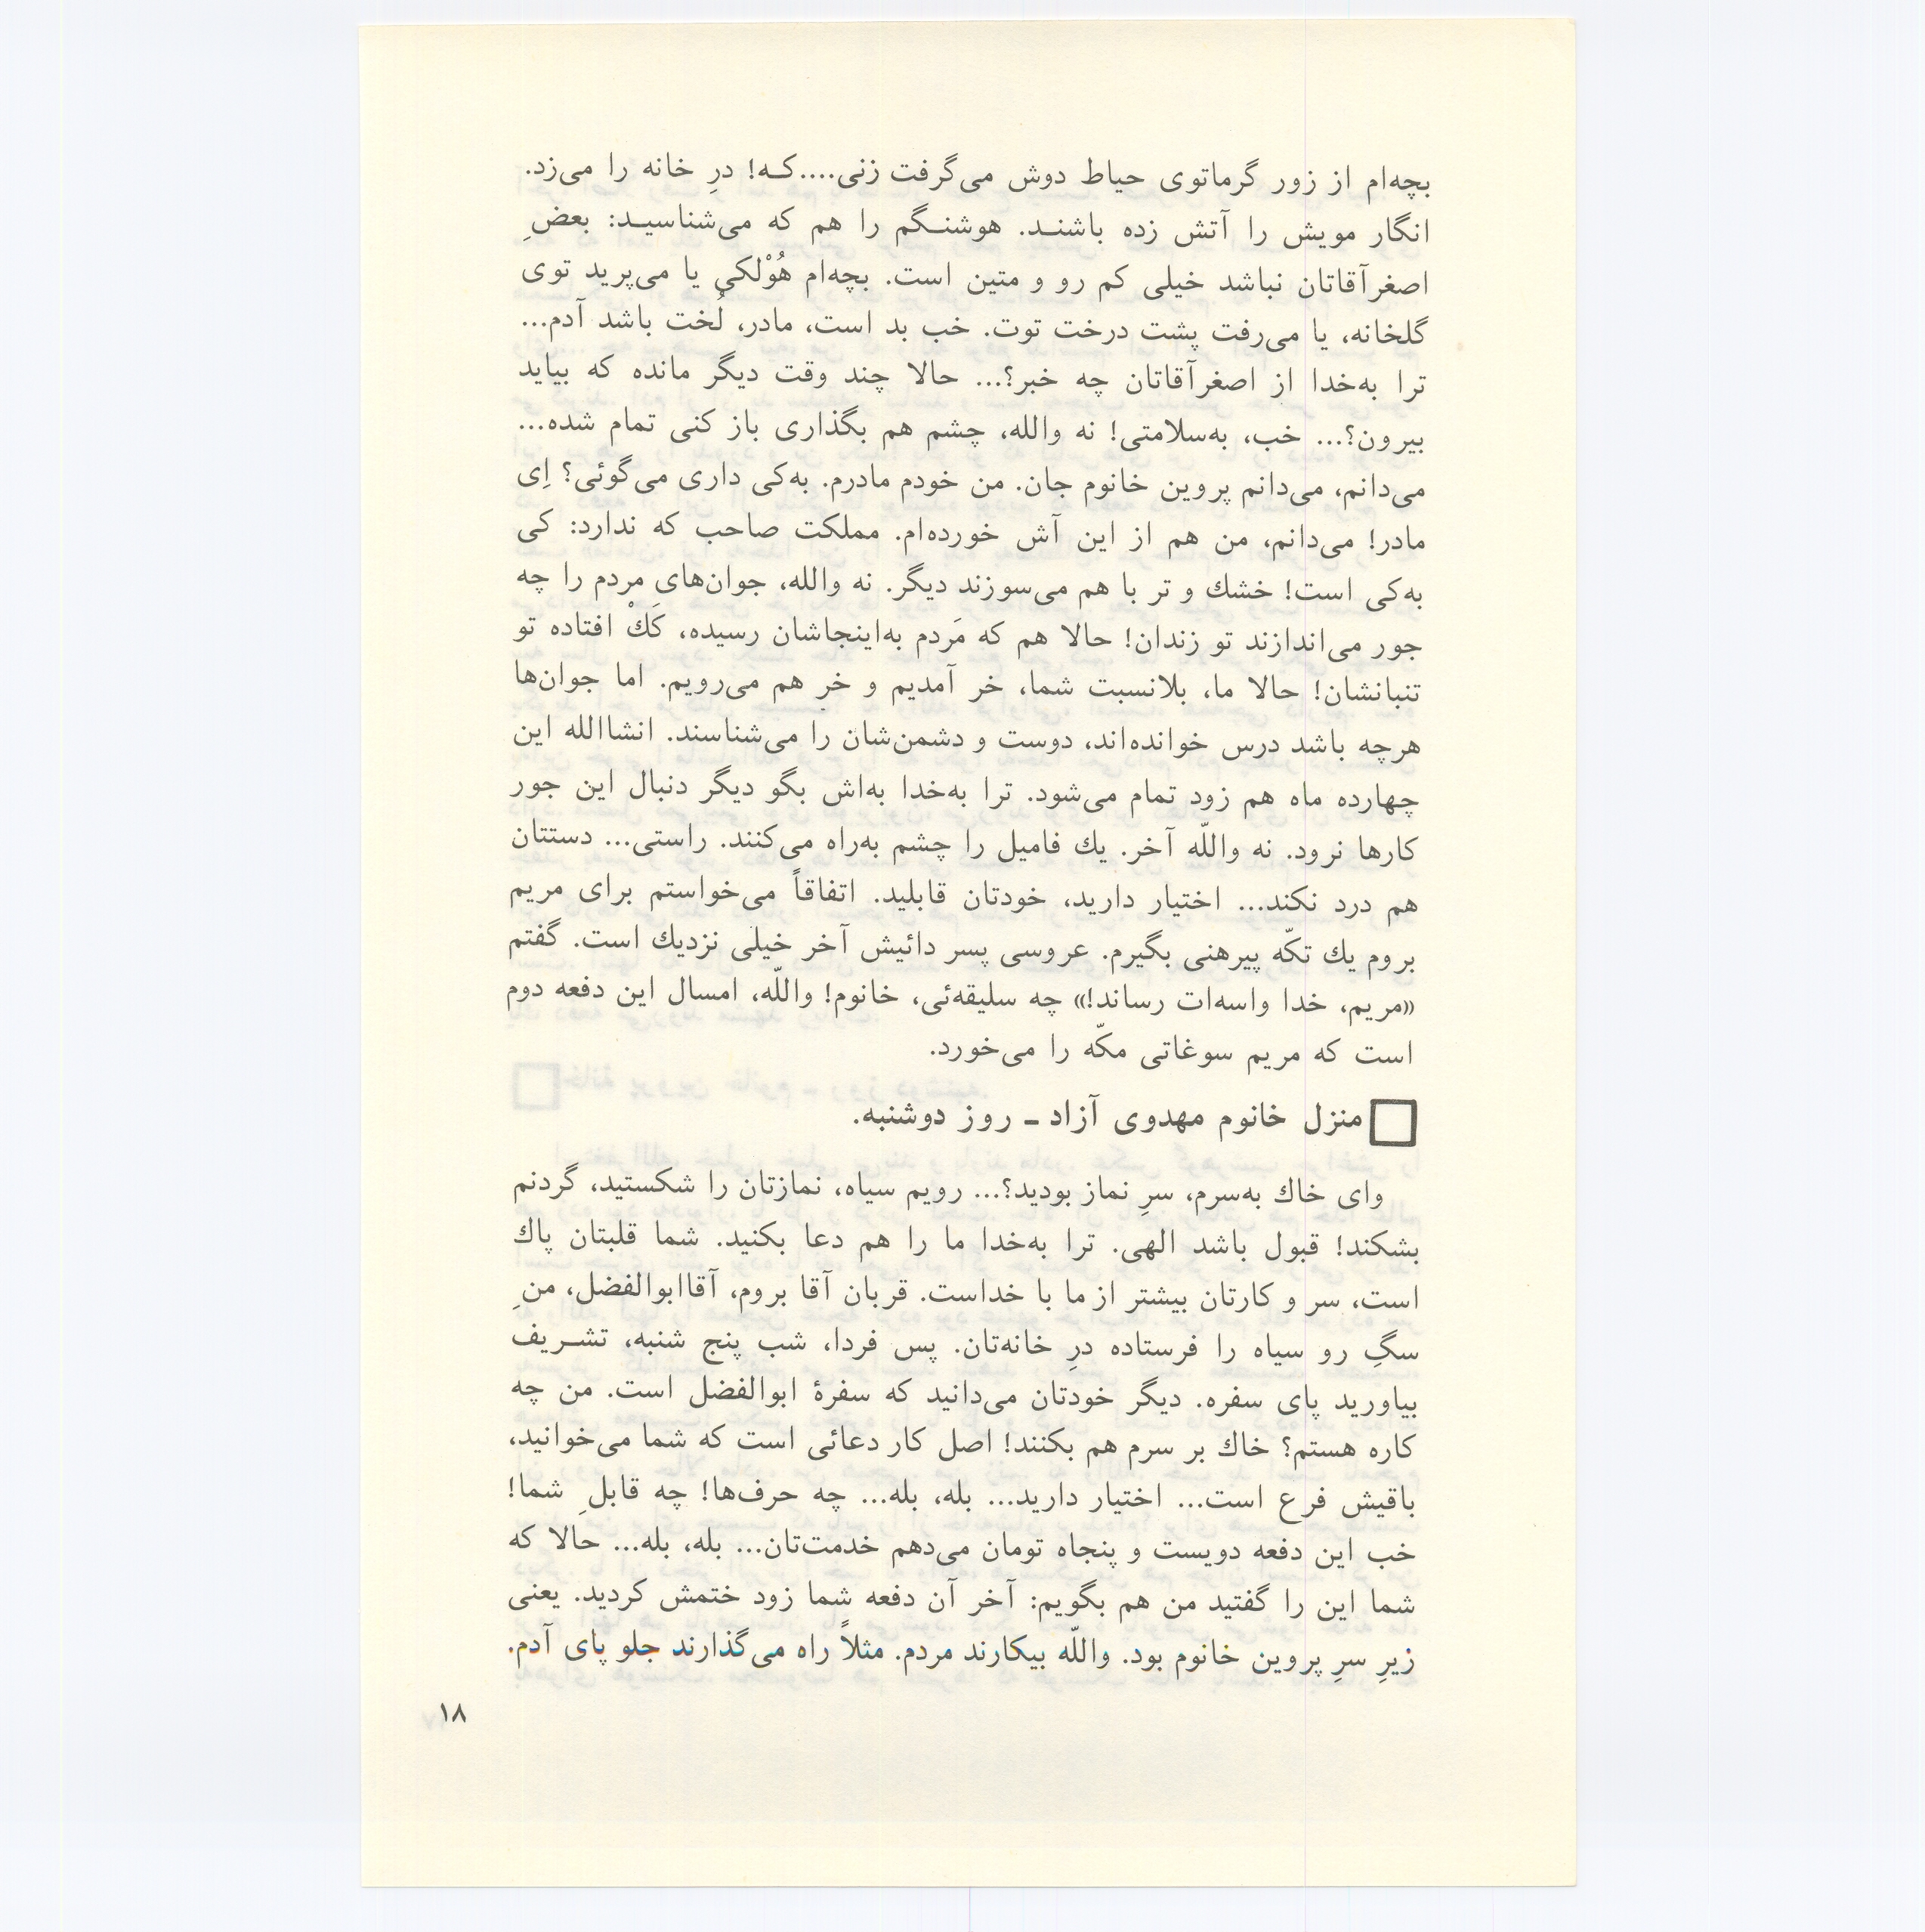 بچه‌ام از زور گرماتوی حیاط دوش می‌گرفت زنی....کـه! درِ خانه را می‌زد.
انگار مویش را آتش زده باشنـد. هوشنـگم را هم که می‌شناسیـد: بعضِ
اصغرآقاتان نباشد خیلی کم رو و متین است. بچه‌ام هُوْلکی یا می‌پرید توی
گلخانه، یا می‌رفت پشت درخت توت. خب بد است، مادر، لُخت باشد آدم...
ترا به‌خدا از اصغرآقاتان چه خبر؟... حالا چند وقت دیگر مانده که بیاید
بیرون؟... خب، به‌سلامتی! نه والله، چشم هم بگذاری باز کنی تمام شده...
می‌دانم، می‌دانم پروین خانوم جان. من خودم مادرم. به‌کی داری می‌گوئی؟ اِی
مادر! می‌دانم، من هم از این آش خورده‌ام. مملکت صاحب که ندارد: کی
به‌کی است! خشك و تر با هم می‌سوزند دیگر. نه والله، جوان‌های مردم را چه
جور می‌اندازند تو زندان! حالا هم که مَردم به‌اینجاشان رسیده، کَكْ افتاده تو
تنبانشان! حالا ما، بلانسبت شما، خر آمدیم و خر هم می‌رویم. اما جوان‌ها
هرچه باشد درس خوانده‌اند، دوست و دشمن‌شان را می‌شناسند. انشاالله این
چهارده ماه هم زود تمام می‌شود. ترا به‌خدا به‌اش بگو دیگر دنبال این جور
کارها نرود. نه واللّه آخر. یك فامیل را چشم به‌راه می‌کنند. راستی... دستتان
هم درد نکند... اختیار دارید، خودتان قابلید. اتفاقاً می‌خواستم برای مریم
بروم یك تکّه پیرهنی بگیرم. عروسی پسر دائیش آخر خیلی نزدیك است. گفتم
«مریم، خدا واسه‌ات رساند!» چه سلیقه‌ئی، خانوم! واللّه، امسال این دفعه دوم
است که مریم سوغاتی مکّه را می‌خورد.
□ منزل خانوم مهدوی آزاد ـ روز دوشنبه.
وای خاك به‌سرم، سرِ نماز بودید؟... رویم سیاه، نمازتان را شکستید، گردنم
بشکند! قبول باشد الهی. ترا به‌خدا ما را هم دعا بکنید. شما قلبتان پاك
است، سر و کارتان بیشتر از ما با خداست. قربان آقا بروم، آقاابوالفضل، منِ
سگِ رو سیاه را فرستاده درِ خانه‌تان. پس فردا، شب پنج شنبه، تشـریف
بیاورید پای سفره. دیگر خودتان می‌دانید که سفرهٔ ابوالفضل است. من چه
کاره هستم؟ خاك بر سرم هم بکنند! اصل کار دعائی است که شما می‌خوانید،
باقیش فرع است... اختیار دارید... بله، بله... چه حرف‌ها! چه قابلِ شما!
خب این دفعه دویست و پنجاه تومان می‌دهم خدمت‌تان... بله، بله... حالا که
شما این را گفتید من هم بگویم: آخر آن دفعه شما زود ختمش کردید. یعنی
زیرِ سرِ پروین خانوم بود. واللّه بیکارند مردم. مثلاً راه می‌گذارند جلو پای آدم.
۱۸